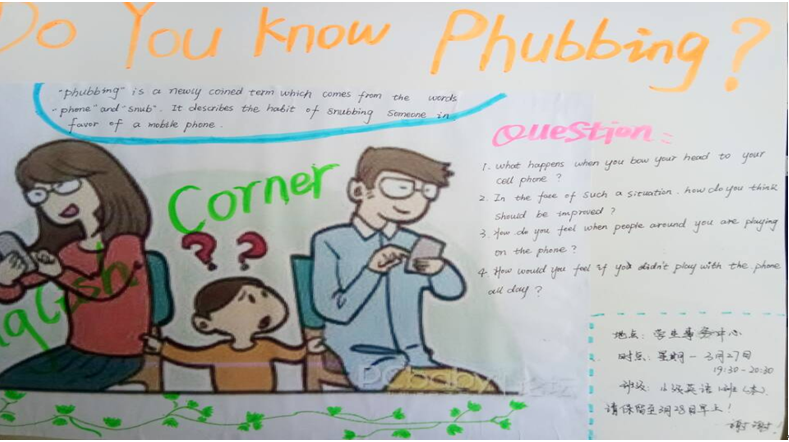 Do You know Phubbing?
"phubbing" is a newly coined term which comes from the words
"phone" and "snub". It describes the habit of snubbing someone in
favor of a mobile phone.
Question:
1. what happens when you bow your head to your
cell phone?
2. In the face of such a situation. how do you think
should be improved?
3. How do you feel when people around you are playing
on the phone?
4. How would you feel if you didn't play with the phone
all day?
Corner
??
nglish
PCbaby
地点: 学生 中心
时间: 星期一 3月27日
19:30-20:30
班级: 16级英语1班(本)
请保留至3月28日早上!
谢谢!